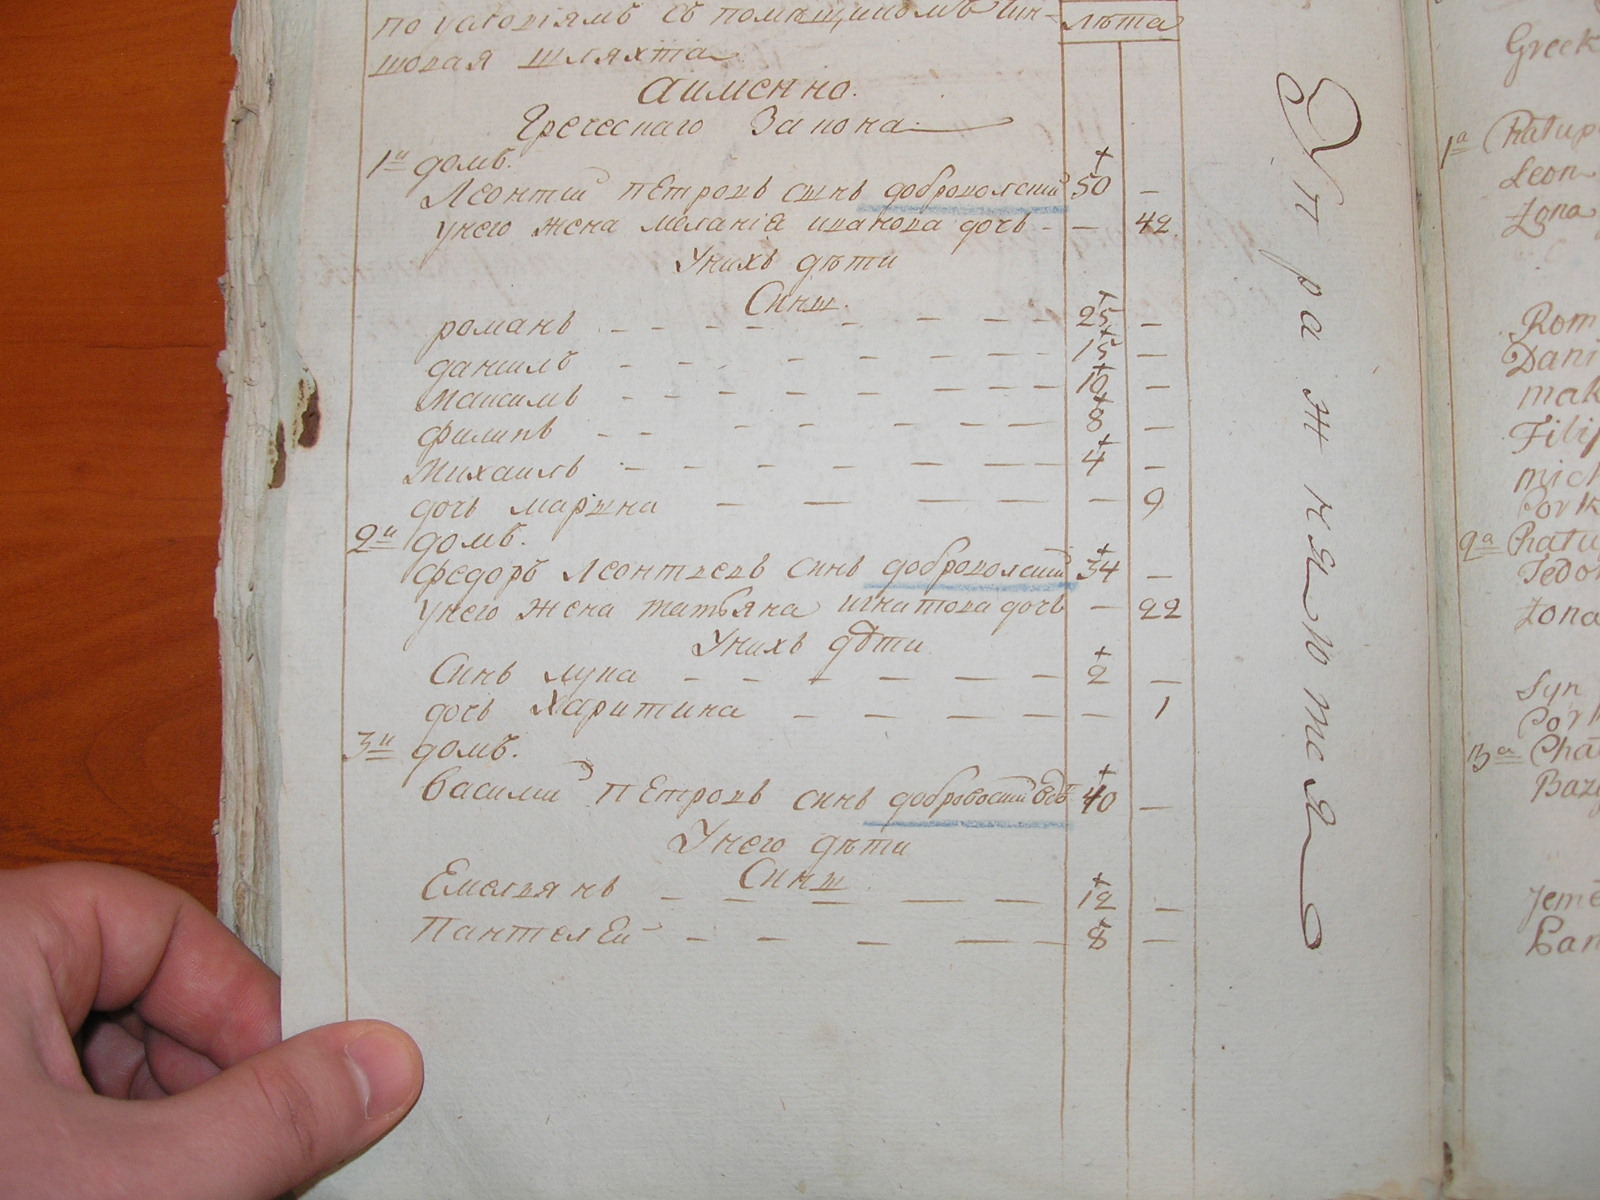 по условіямъ съ помѣщикомъ Чин-
шовая шляхта
лѣта
а именно.
Греческаго Закона
1й домъ.
Леонтий Петровъ сынъ доброволский 50 —
у него жена меланія иванова дочь - — 42
У нихъ дѣти
Сины.
романъ — 25 —
данилъ — 15 —
Максимъ — 10 —
филипъ — 8 —
Михаилъ — 4 —
дочь марына — — 9
2й домъ.
федоръ Леонтиевъ синъ доброволский 34 —
у него жена татьяна игнатова дочь — 22
У нихъ дѣти
Синъ лука — 2 —
дочь Харитина — — 1
3й домъ.
Василий Петровъ синъ 40 —
У него дѣти
Сины.
Емелянъ — 12 —
Пантелей — 8 —
Упражняются
Greck
1a Chałup
Leon
Żona
Rom
Dani
mak
Filip
mich
Cork
2a Chału
Fedor
Żona
Syn
Cork
3a Chał
Bazy
Jeme
Pan